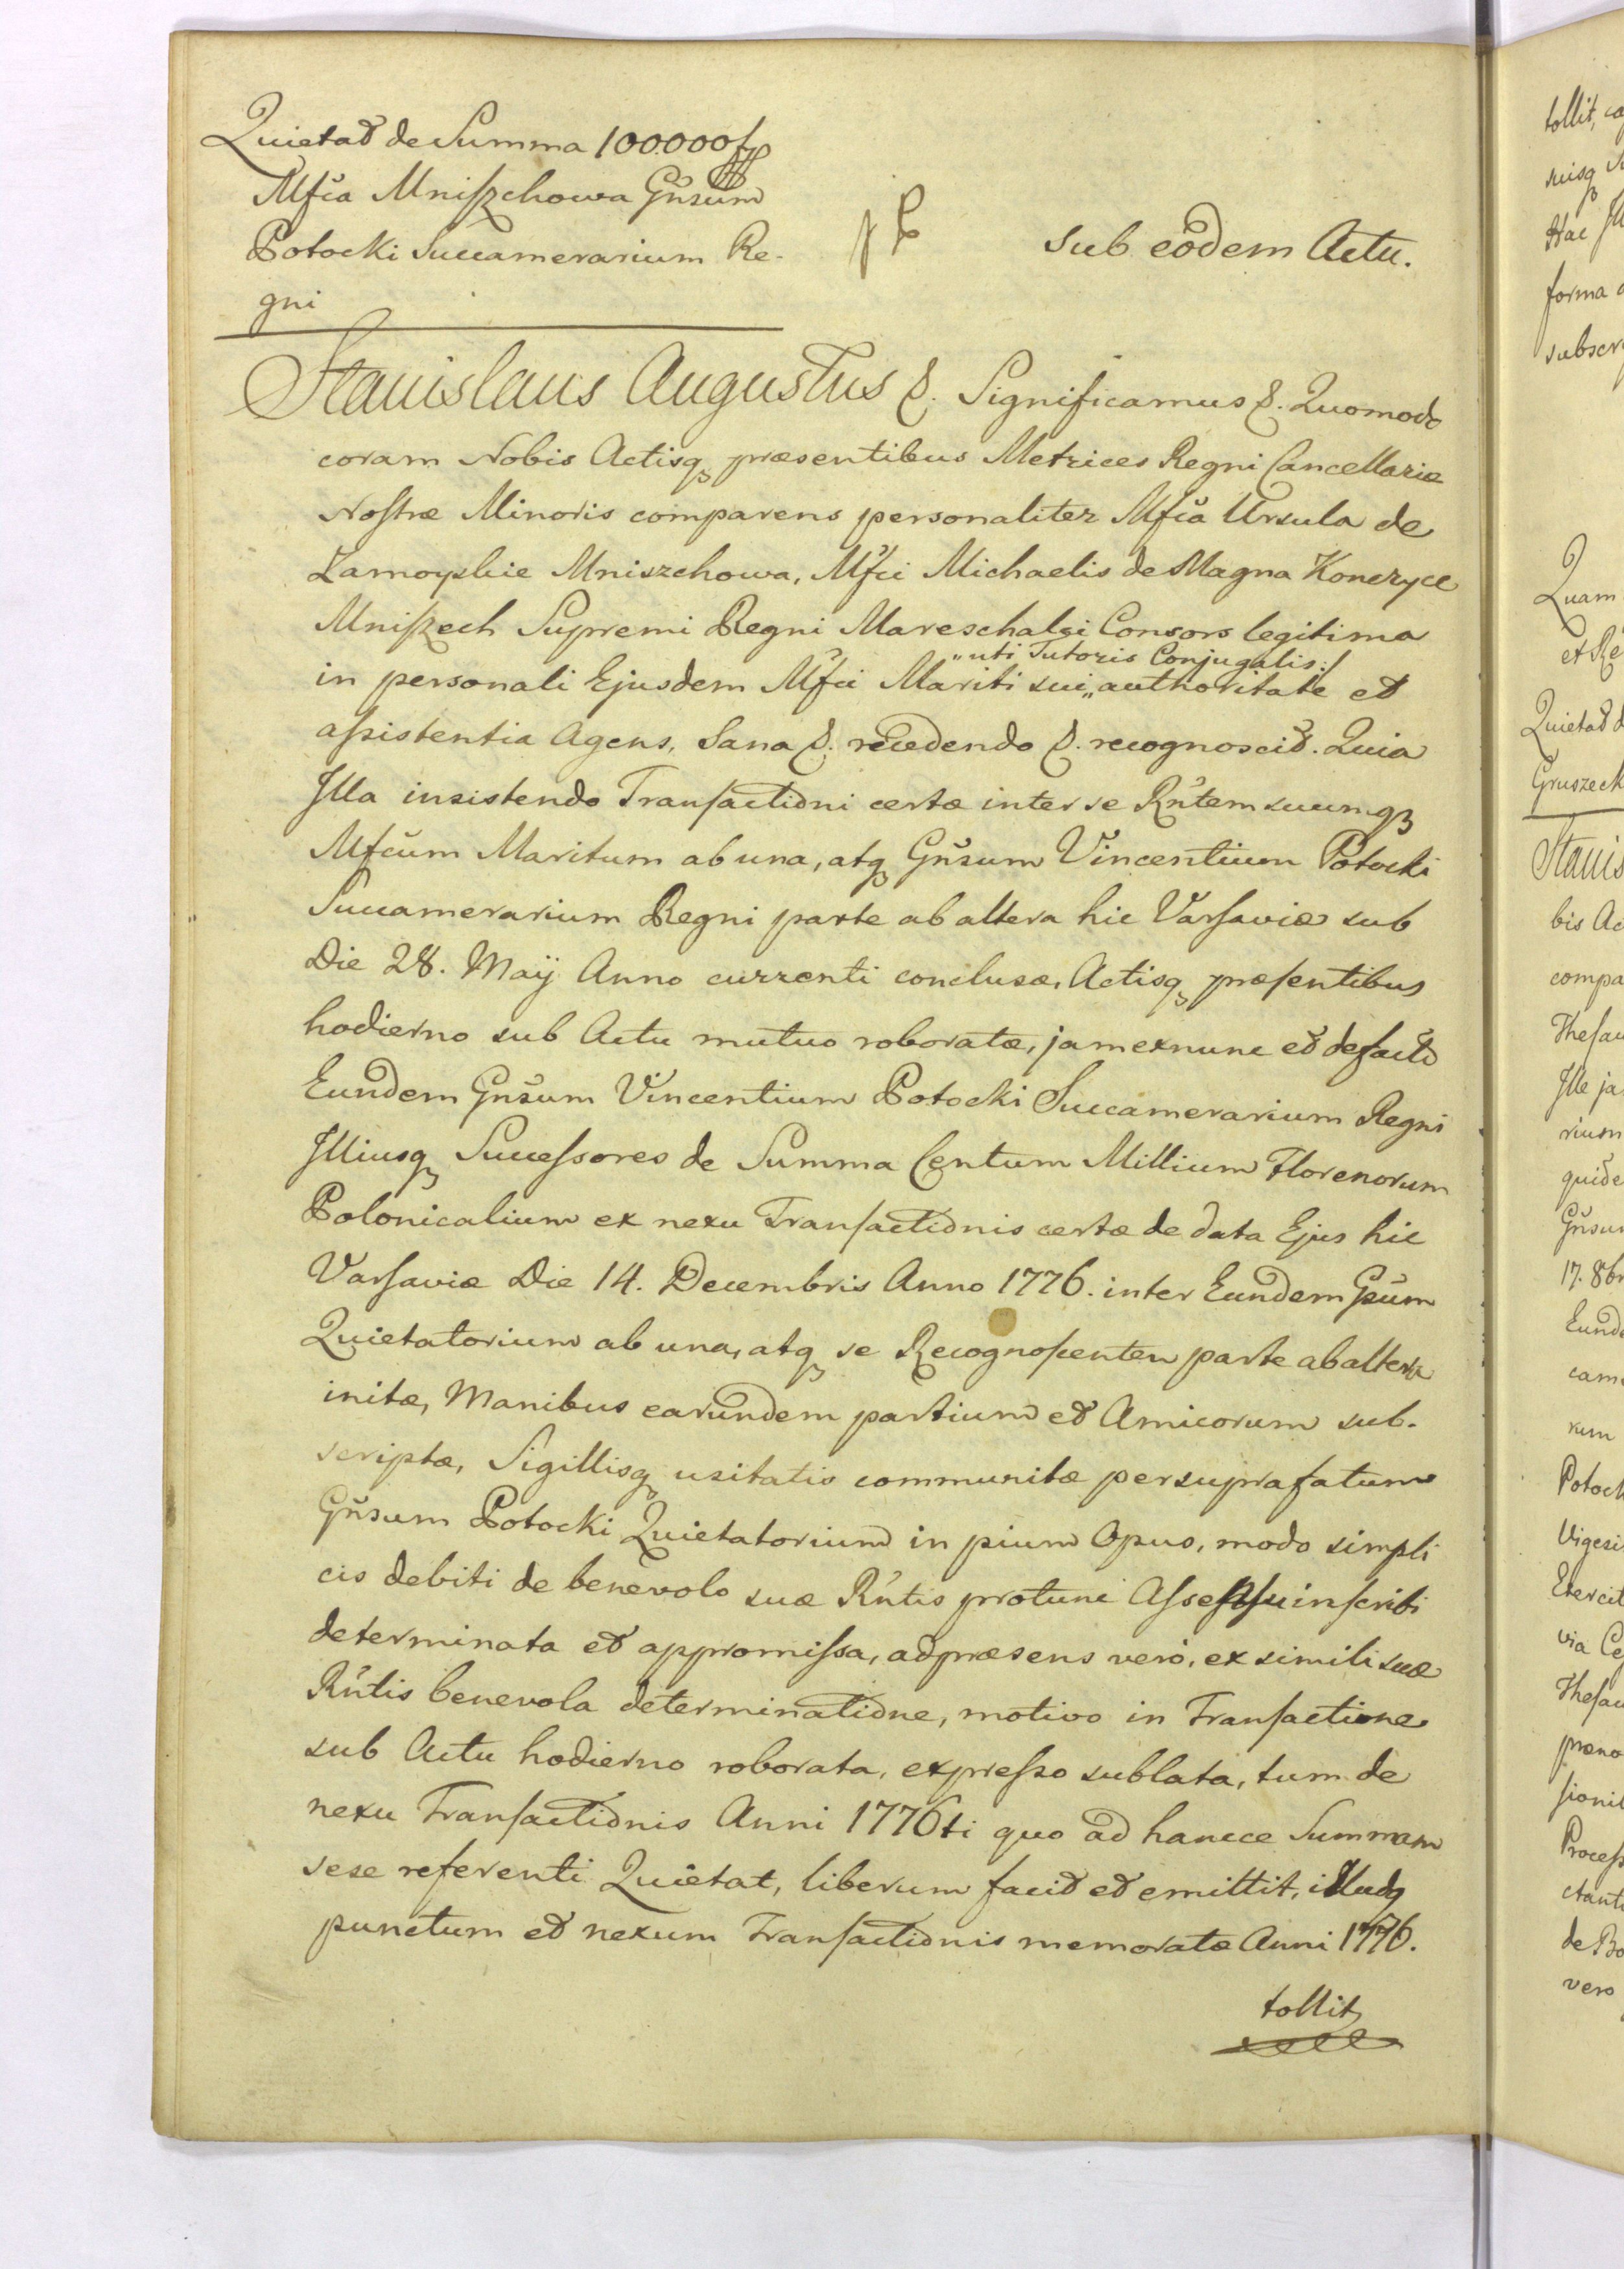 Quietat de Summa 100000 f
Mfca Mniszchowa Gnsum
Potocki Succamerarium Re-
gni
sub eodem Actu.
Stanislaus Augustus &. Significamus &. Quomodo
coram Nobis Actisq præsentibus Metrices Regni Cancellariæ
Nostræ Minoris comparens personaliter Mfca Ursula de
Zamoyskie Mniszchowa, Mfci Michaelis de Magna Konczyce
Mniszech Supremi Regni Mareschalci Consors legitima
„uti Tutoris Conjugalis:/
in personali Ejusdem Mfci Mariti sui „authoritate et
assistentia Agens, Sana &. recedendo &. recognoscit. Quia
Illa insistendo Transactioni certæ inter se Rntem suumq
Mfcum Maritum ab una, atq Gnsum Vincentium Potocki
Succamerarium Regni parte ab altera hic Varsaviæ sub
Die 28. Maÿ Anno currenti conclusæ, Actisq præsentibus
hodierno sub Actu mutuo roboratæ, jam exnunc et defacto
Eundem Gnsum Vincentium Potocki Succamerarium Regni
Illiusq Successores de Summa Centum Millium Florenorum
Polonicalium ex nexu Transactionis certæ de data Ejus hic
Varsaviæ Die 14. Decembris Anno 1776. inter Eundem Gsum
Quietatorium ab una, atq se Recognoscentem parte ab altera
initæ, Manibus earundem partium et Amicorum sub-
scriptæ, Sigillisq usitatis communitæ per suprafatum
Gnsum Potocki Quietatorium in pium Opus, modo simpli
cis debiti de benevolo suæ Rntis protunc Assensu inscribi
determinata et appromissa, ad præsens vero, ex simili suæ
Rntis benevola determinatione, motivo in Transactione
sub Actu hodierno roborata, expresso sublata, tum de
nexu Transactionis Anni 1776ti quo ad hancce Summam
sese referenti Quietat, liberum facit et emittit, illudq
punctum et nexum Transactionis memoratæ Anni 1776.
tollit